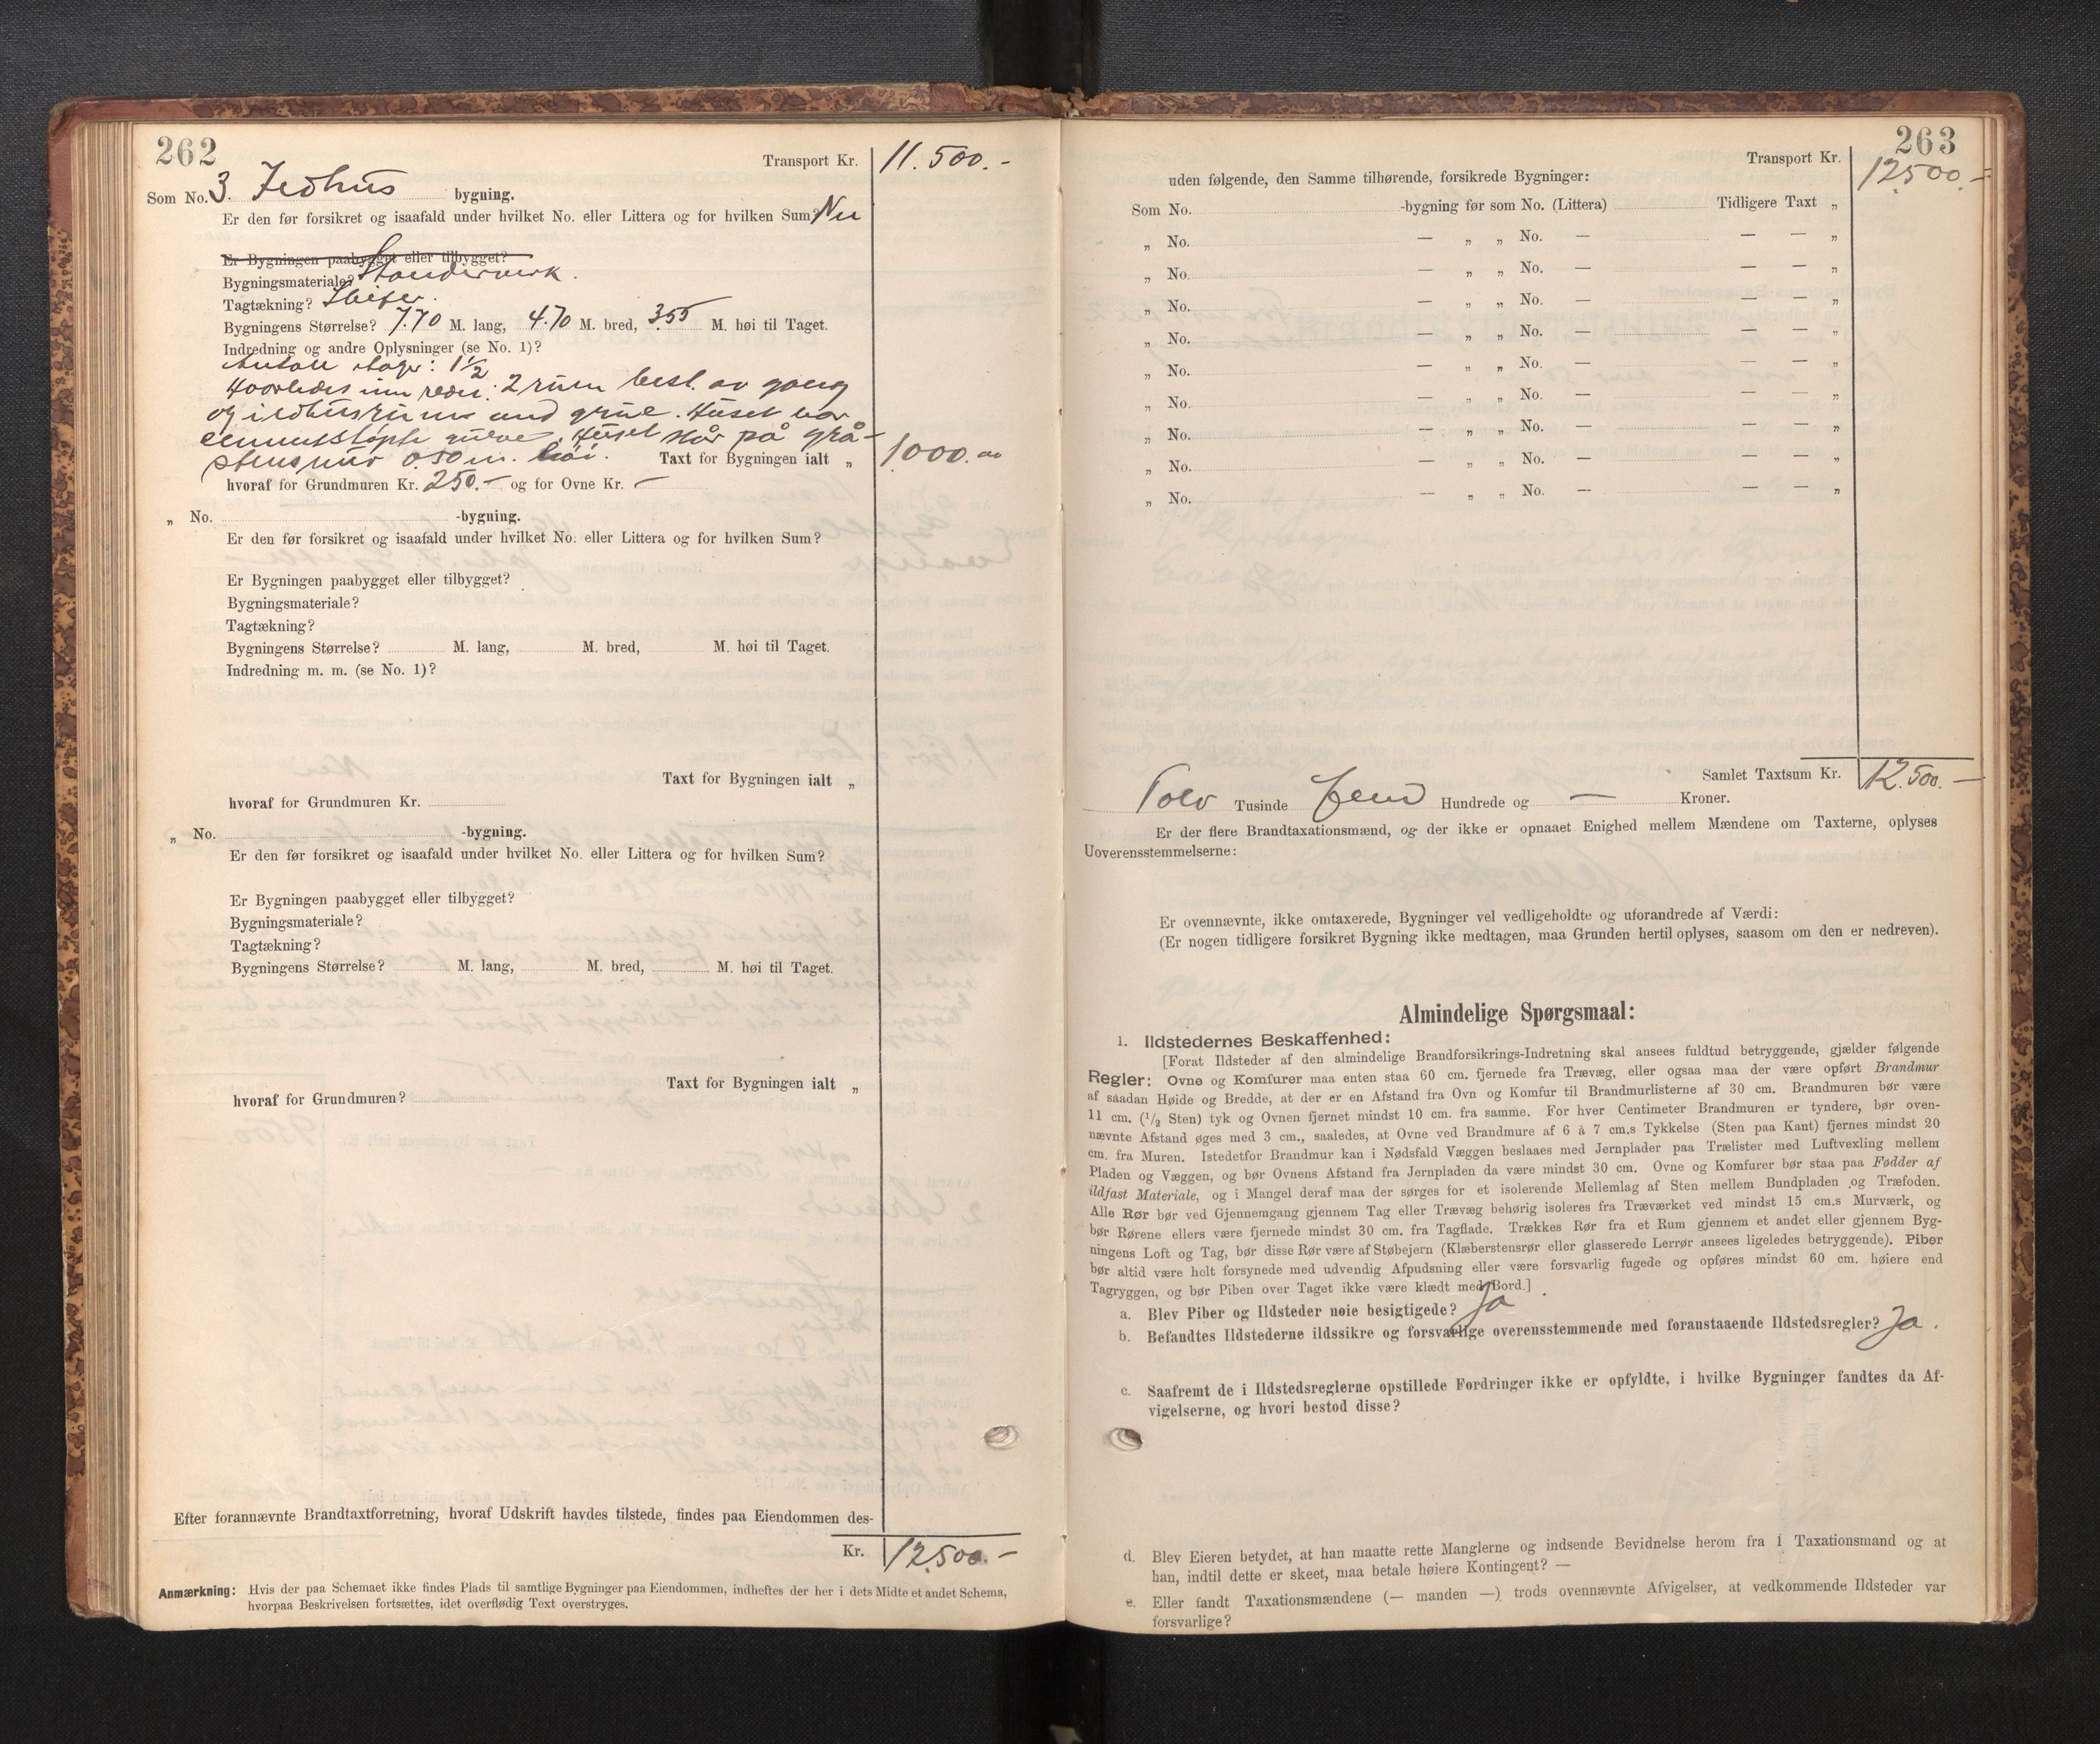 262
Transport Kr. 11.500.-
Som No. 3. Ildhus bygning.
Er den før forsikret og isaafald under hvilket No. eller Littera og for hvilken Sum? Nei
Er Bygningen paabygget eller tilbygget?
Bygningsmateriale? Standerverk.
Tagtækning? Skifer.
Bygningens Størrelse? 7.70 M. lang, 4.70 M. bred, 3.55 M. høi til Taget.
Indredning og andre Oplysninger (se No. 1)?
Antall etager: 1½
Hvorledes innredet: 2 rum best. av gang
og ildhusrum med grue. Huset har
cementstøpte gulve. Huset står på grå-
stensmur 0.50 m. høi. Taxt for Bygningen ialt „ 1000.00
hvoraf for Grundmuren Kr. 250.- og for Ovne Kr. -
„ No. -bygning.
Er den før forsikret og isaafald under hvilket No. eller Littera og for hvilken Sum?
Er Bygningen paabygget eller tilbygget?
Bygningsmateriale?
Tagtækning?
Bygningens Størrelse? M. lang, M. bred, M. høi til Taget.
Indredning m. m. (se No. 1)?
Taxt for Bygningen ialt „
hvoraf for Grundmuren Kr.
„ No. -bygning.
Er den før forsikret og isaafald under hvilket No. eller Littera og for hvilken Sum?
Er Bygningen paabygget eller tilbygget?
Bygningsmateriale?
Tagtækning?
Bygningens Størrelse? M. lang, M. bred, M. høi til Taget.
Taxt for Bygningen ialt „
hvoraf for Grundmuren?
Efter forannævnte Brandtaxtforretning, hvoraf Udskrift havdes tilstede, findes paa Eiendommen des-
Kr. 12.500.-
Anmærkning: Hvis der paa Schemaet ikke findes Plads til samtlige Bygninger paa Eiendommen, indheftes der her i dets Midte et andet Schema,
hvorpaa Beskrivelsen fortsættes, idet overflødig Text overstryges.
263
Transport Kr. 12.500.-
uden følgende, den Samme tilhørende, forsikrede Bygninger:
Som No. -bygning før som No. (Littera) Tidligere Taxt „
„ No. — „ „ No. — — — „
„ No. — „ „ No. — — — „
„ No. — „ „ No. — — — „
„ No. — „ „ No. — — — „
„ No. — „ „ No. — — — „
„ No. — „ „ No. — — — „
„ No. — „ „ No. — — — „
„ No. — „ „ No. — — — „
„ No. — „ „ No. — — — „
Samlet Taxtsum Kr. 12.500.-
Tolv Tusinde fem Hundrede og — Kroner.
Er der flere Brandtaxationsmænd, og der ikke er opnaaet Enighed mellem Mændene om Taxterne, oplyses
Uoverensstemmelserne:
Er ovennævnte, ikke omtaxerede, Bygninger vel vedligeholdte og uforandrede af Værdi:
(Er nogen tidligere forsikret Bygning ikke medtagen, maa Grunden hertil oplyses, saasom om den er nedreven).
Almindelige Spørgsmaal:
1. Ildstedernes Beskaffenhed:
[Forat Ildsteder af den almindelige Brandforsikrings-Indretning skal ansees fuldtud betryggende, gjælder følgende
Regler: Ovne og Komfurer maa enten staa 60 cm. fjernede fra Trævæg, eller ogsaa maa der være opført Brandmur
af saadan Høide og Bredde, at der er en Afstand fra Ovn og Komfur til Brandmurlisterne af 30 cm. Brandmuren bør være
11 cm. (1/2 Sten) tyk og Ovnen fjernet mindst 10 cm. fra samme. For hver Centimeter Brandmuren er tyndere, bør oven-
nævnte Afstand øges med 3 cm., saaledes, at Ovne ved Brandmure af 6 à 7 cm.s Tykkelse (Sten paa Kant) fjernes mindst 20
cm. fra Muren. Istedetfor Brandmur kan i Nødsfald Væggen beslaaes med Jernplader paa Trælister med Luftvexling mellem
Pladen og Væggen, og bør Ovnens Afstand fra Jernpladen da være mindst 30 cm. Ovne og Komfurer bør staa paa Fødder af
ildfast Materiale, og i Mangel deraf maa der sørges for et isolerende Mellemlag af Sten mellem Bundpladen og Træfoden.
Alle Rør bør ved Gjennemgang gjennem Tag eller Trævæg behørig isoleres fra Træværket ved mindst 15 cm.s Murværk, og
bør Rørene ellers være fjernede mindst 30 cm. fra Tagflade. Trækkes Rør fra et Rum gjennem et andet eller gjennem Byg-
ningens Loft og Tag, bør disse Rør være af Støbejern (Klæberstensrør eller glasserede Lerrør ansees ligeledes betryggende). Piber
bør altid være helt forsynede med udvendig Afpudsning eller være forsvarlig fugede og opføres mindst 60 cm. høiere end
Tagryggen, og bør Piben over Taget ikke være klædt med Bord.]
a. Blev Piber og Ildsteder nøie besigtigede? Ja
b. Befandtes Ildstederne ildssikre og forsvarlige overensstemmende med foranstaaende Ildstedsregler? Ja.
c. Saafremt de i Ildstedsreglerne opstillede Fordringer ikke er opfyldte, i hvilke Bygninger fandtes da Af-
vigelserne, og hvori bestod disse?
d. Blev Eieren betydet, at han maatte rette Manglerne og indsende Bevidnelse herom fra 1 Taxationsmand og at
han, indtil dette er skeet, maa betale høiere Kontingent? —
e. Eller fandt Taxationsmændene (— manden —) trods ovennævnte Afvigelser, at vedkommende Ildsteder var
forsvarlige?